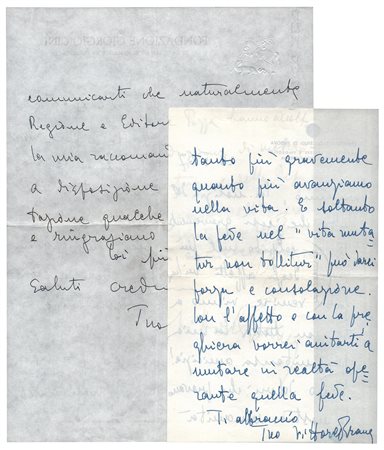 FONDAZIONE GIORGIO CINI
comunicarti che naturalmente
Regione e Editor
la mia raccoman
a disposizione
tazione qualche
e ringraziano
Coi più
Saluti cred
Tuo
tanto più gravemente
quanto più avanziamo
nella vita. E soltanto
la fede nel "vita muta=
tur non tollitur" può darci
forza e consolazione.
Con l'affetto e con la pre=
ghiera vorrei aiutarti a
mutare in realtà ope=
rante quella fede.
Ti abbraccio
Tuo Vittore Branca